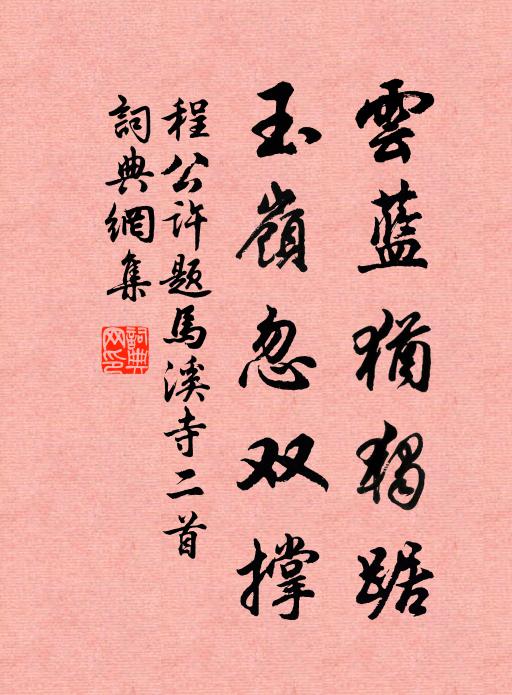 雲藍猶獨踞
玉嶺忽双撑
程公許题馬溪寺二首
詞典網集
詞典网印